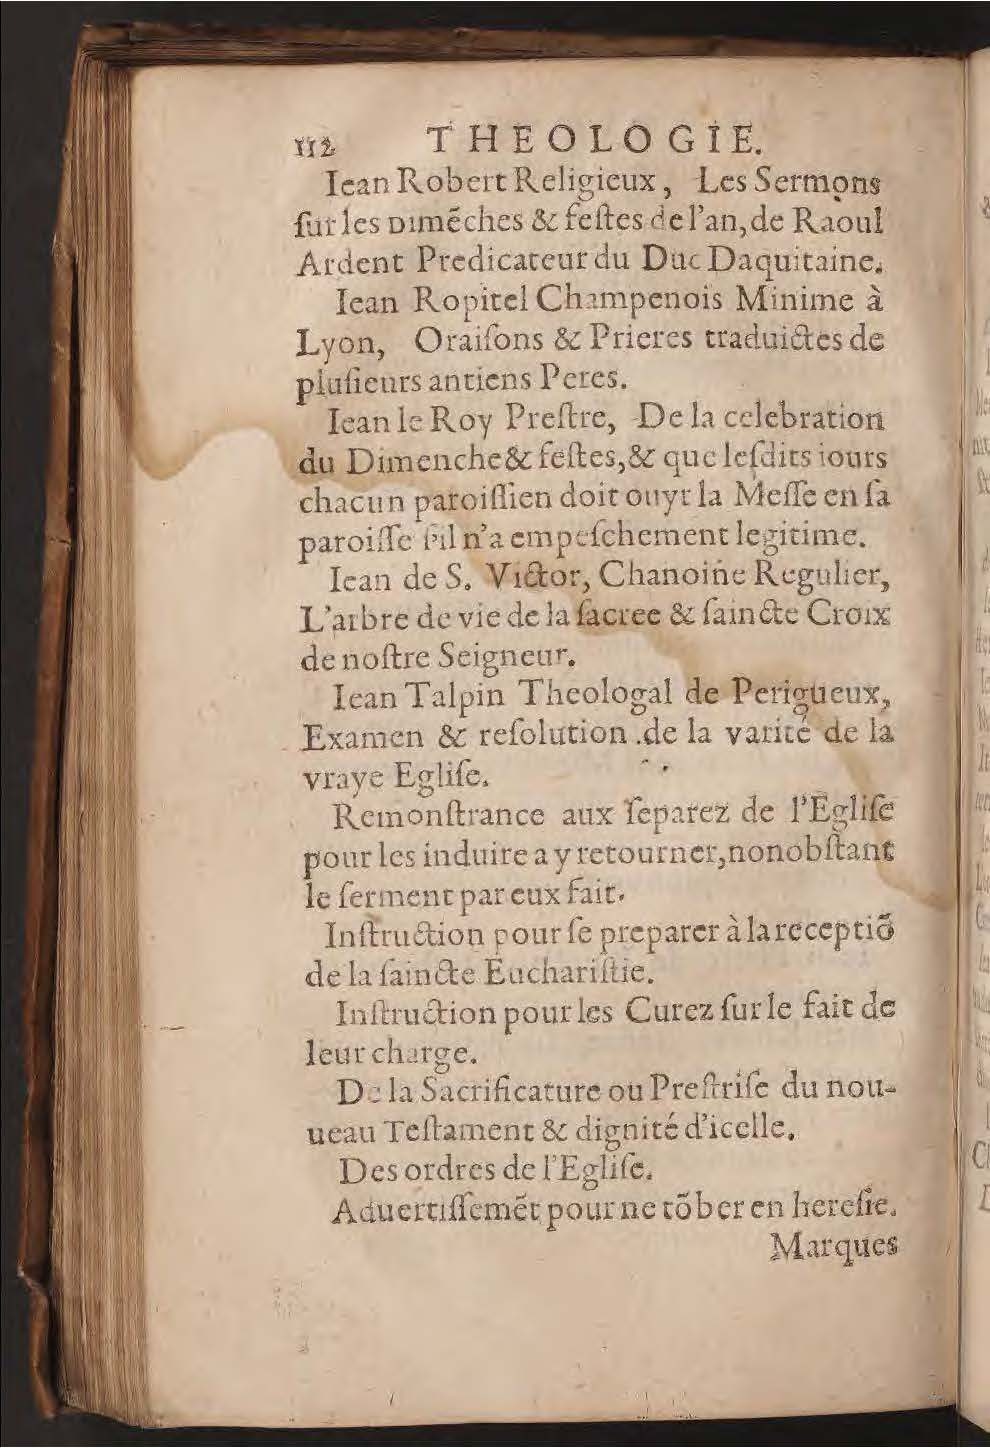 112 THEOLOGIE.
Iean Robert Religieux, Les Sermons
ſur les Dimẽches & feſtes de l'an, de Raoul
Ardent Predicateur du Duc Daquitaine.
Iean Ropitel Champenois Minime à
Lyon, Oraiſons & Prieres traduictes de
pluſieurs antiens Peres.
Iean le Roy Preſtre, De la celebration
du Dimenche & feſtes, & que leſdits iours
chacun paroiſſien doit ouyr la Meſſe en ſa
paroiſſe ſ'il n'a empeſchement legitime.
Iean de S. Victor, Chanoine Regulier,
L'arbre de vie de la ſacree & ſaincte Croix
de noſtre Seigneur.
Iean Talpin Theologal de Perigueux,
Examen & reſolution .de la varité de la
vraye Egliſe.
Remonſtrance aux ſeparez de l'Egliſe
pour les induire a y retourner, nonobſtant
le ſerment par eux fait.
Inſtruction pour ſe preparer à la receptiõ
de la ſaincte Euchariſtie.
Inſtruction pour les Curez ſur le fait de
leur charge.
De la Sacrificature ou Preſtriſe du nou-
ueau Teſtament & dignité d'icelle.
Des ordres de l'Egliſe.
Aduertiſſemẽt pour ne tõber en hereſie.
Marques